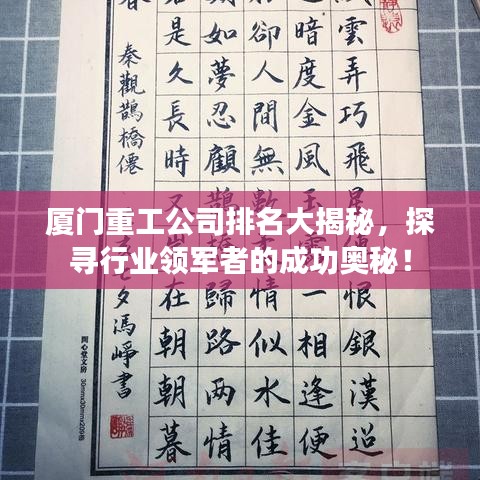 厦门重工公司排名大揭秘，探
寻行业领军者的成功奥秘！
雲弄巧飛星恨銀漢迢
暗度金風玉一相逢便
卻人間無數情似水佳
如夢忍顧鵲歸路兩情
是久長時又在朝朝暮
秦觀鵲橋僊
夕馮崢書
開心堂文房